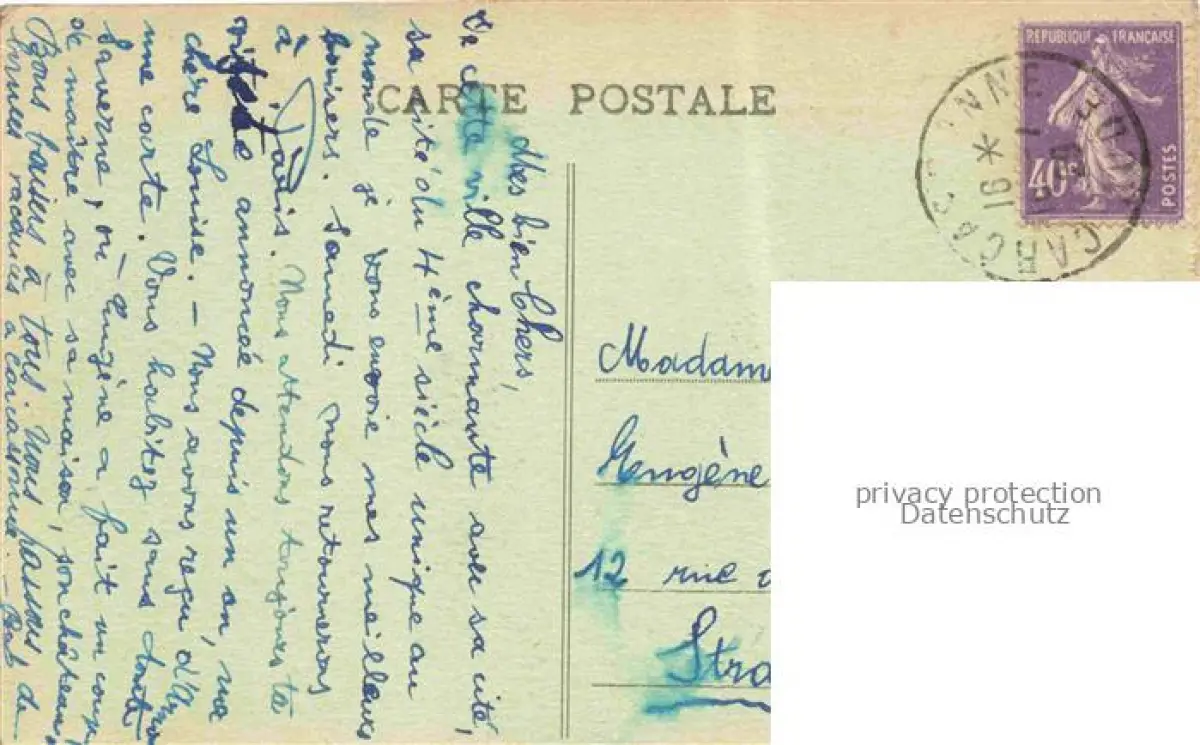 CARTE POSTALE
REPUBLIQUE FRANÇAISE
40c
POSTES
CARCASSONNE
16
Mes bien Chers,
De cette ville charmante avec sa cité,
sa cité du 4ème siècle unique au
monde je vous envoie mes meilleurs
baisers. Samedi nous retournerons
à Paris. Nous attendons toujours ta
visite annoncée depuis un an, ma
chère Louise. — Nous avons reçu d'
une carte. Vous habitez sans doute
Saverne, où Eugène a fait un coup
de maître avec sa maison, son château,
Bons baisers à tous. Nous passons de
bonnes vacances à Carcassonne. —
Madam
Eugène
12 rue
Stra
privacy protection
Datenschutz